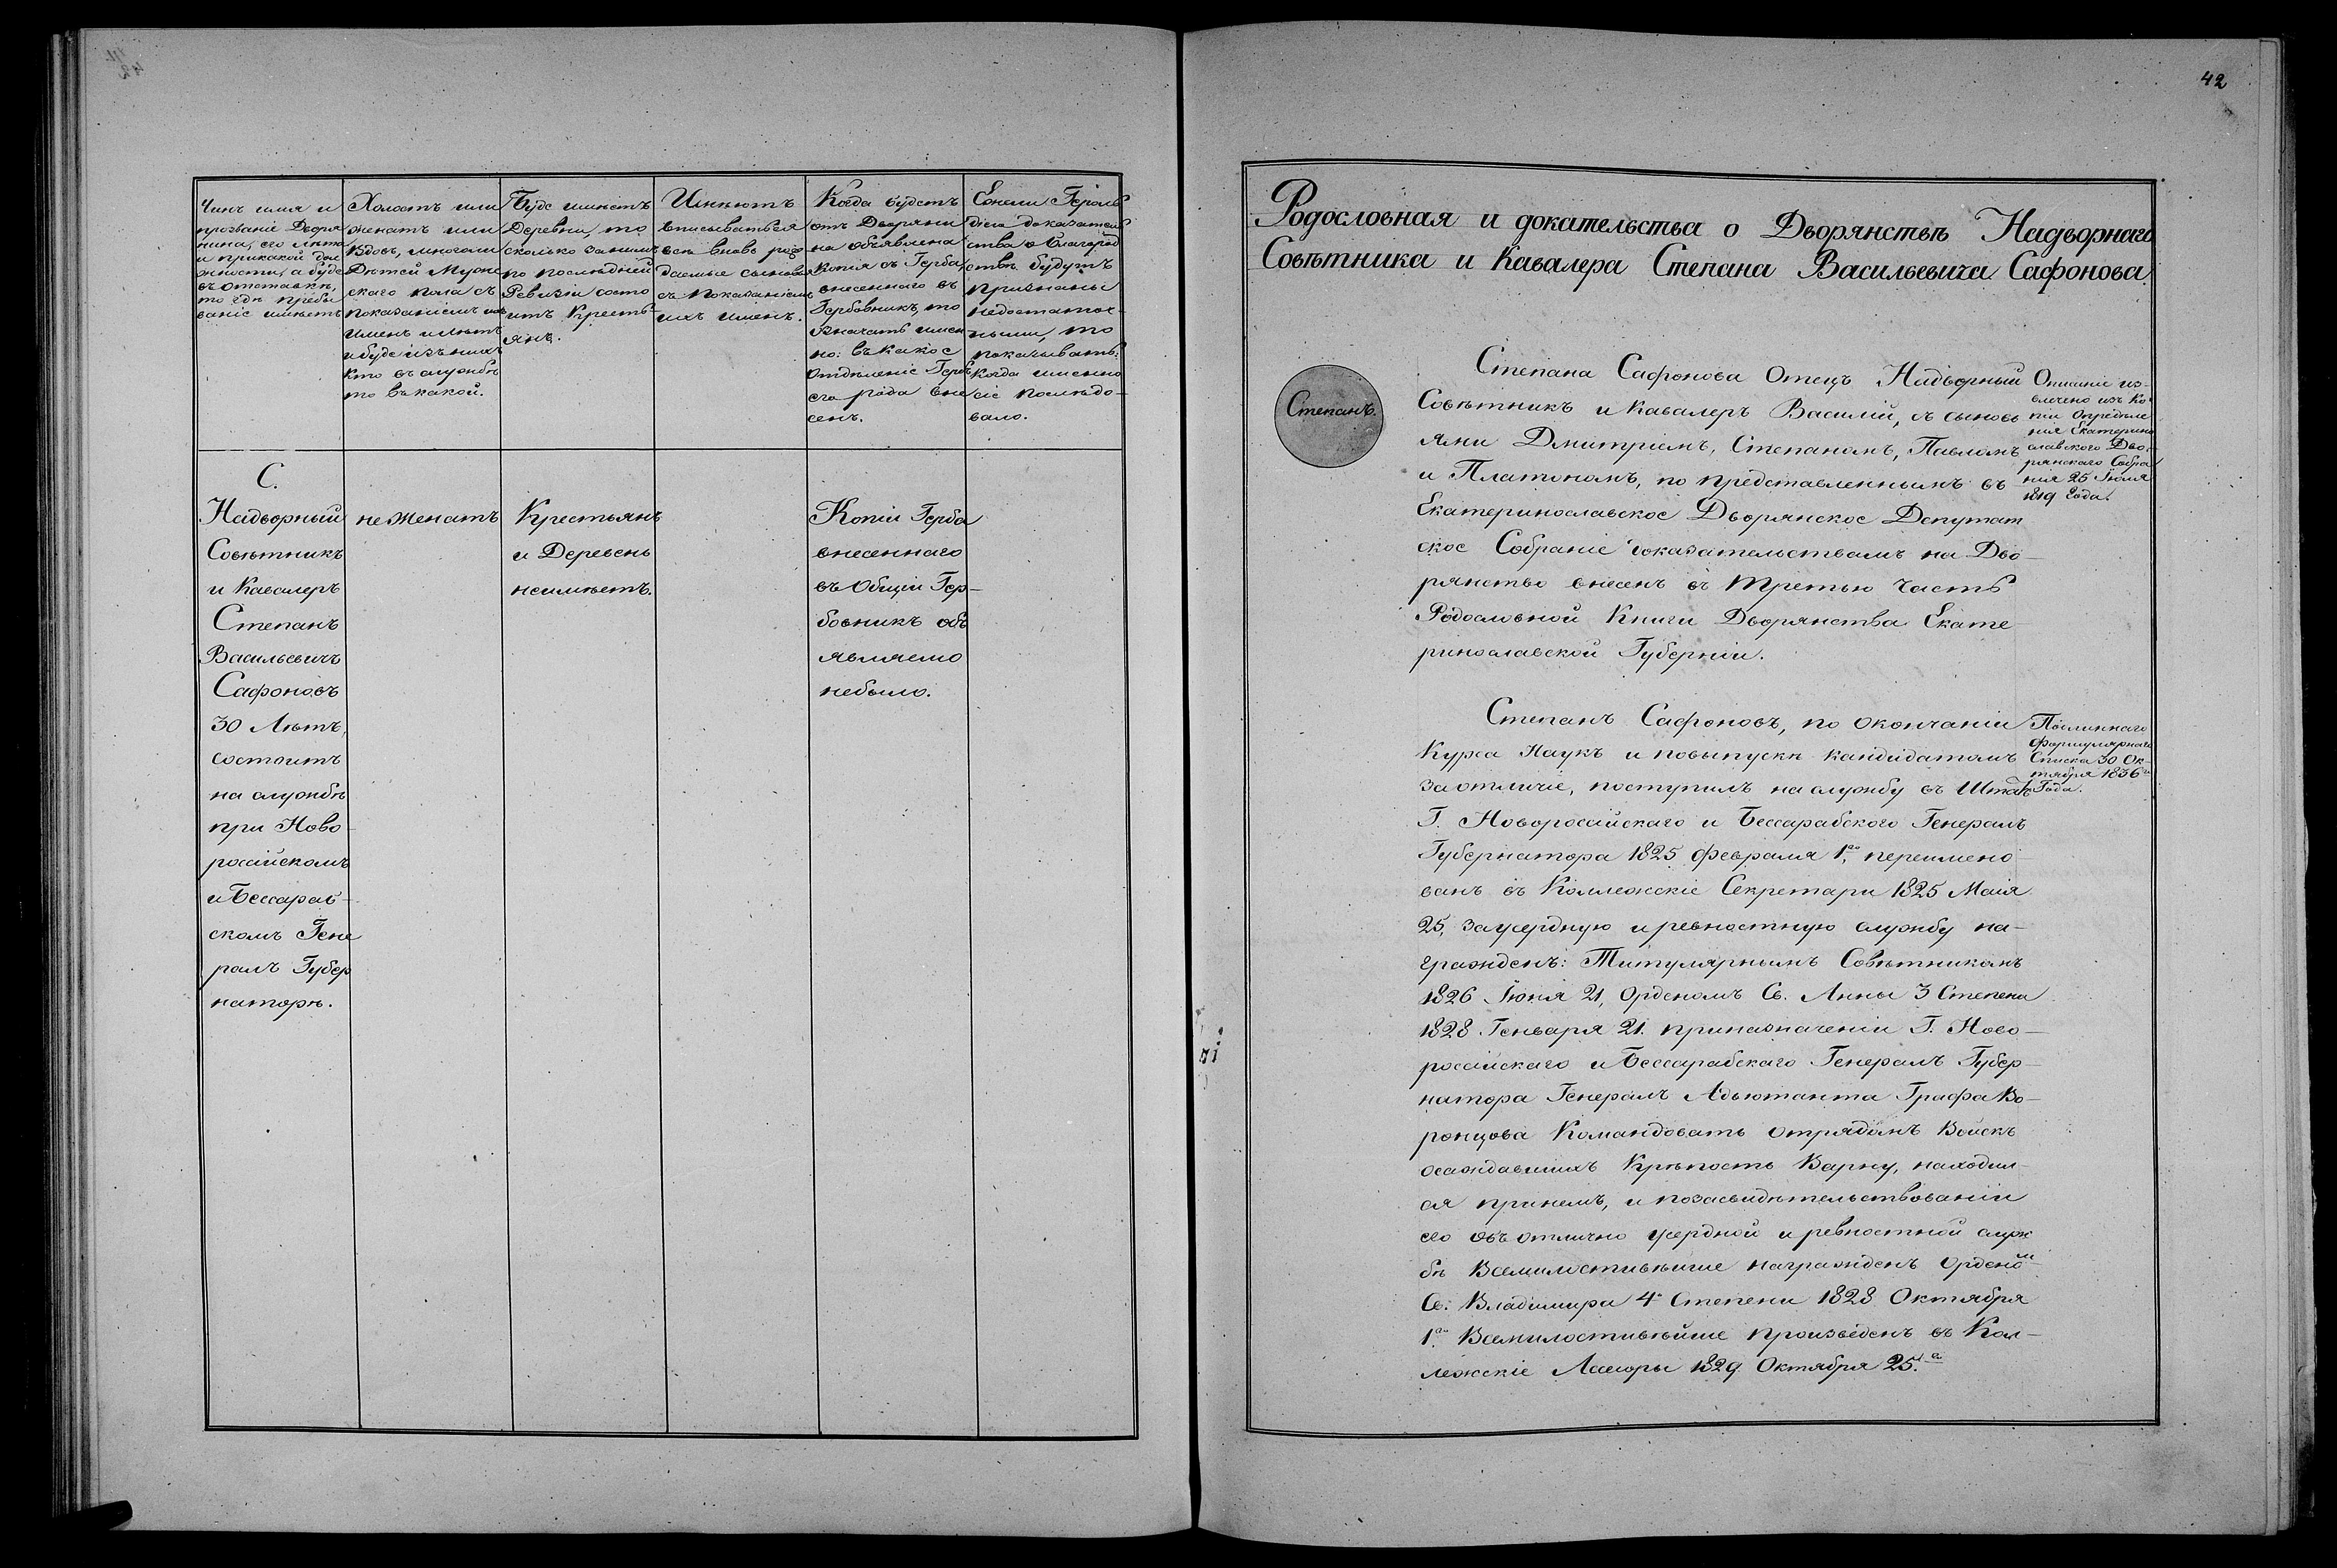 Чинъ имя и
прозваніе Дворя
нина, его лѣта
и прикакой дол
жности, а буде
въ отставкѣ,
то гдѣ пребы
ваніе имѣетъ
Холостъ или
женатъ или
Вдовъ, многоли
Дѣтей Муже
скаго пола съ
показаніемъ ихъ
Именъ и лѣтъ
и буде изъ нихъ
кто въ службѣ
то въ какой.
Буде имѣетъ
Деревни, то
сколько за нимъ
по послѣдней
Ревизіи состо
итъ Кресть
янъ.
Имѣютъ
вписываться
всѣ вновь рож
даемые сыновья
съ показаніемъ
ихъ именъ.
Когда будетъ
отъ Дворяни
на объявлена
копія съ Герба,
внесеннаго въ
Гербовникъ, то
означать имен
но: въ какое
отдѣленіе Гербъ
его рода вне
сенъ.
Еснели Героль
діею доказатель
ства о благород
ствѣ будутъ
признаны
недостаточ-
ными, то
показывать:
когда именно
сіе послѣдо-
вало.
С.
Надворный
Совѣтникъ
и Кавалеръ
Степанъ
Васильевичъ
Сафоновъ
30 Лѣтъ,
состоитъ
на службѣ
при Ново-
россійскомъ
и Бессараб-
скомъ Гене
ралъ Губер
наторѣ.
не Женатъ
Крестьянъ
и Деревень
неимѣетъ.
Копіи Герба
внесеннаго
въ Общій Гер-
бовникъ объ
являемо
небыло.
42
Родословная и докательства о Дворянствѣ Надворнаго
Совѣтника и Кавалера Степана Васильевича Сафонова.
Степанъ.
Степана Сафонова Отецъ Надворный
Совѣтникъ и Кавалеръ Василій, съ сыновь
ями Дмитріемъ, Степаномъ, Павломъ
и Платономъ, по представленнымъ въ
Екатеринославское Дворянское Депутат
ское Собраніе доказательствамъ на Дво-
рянство внесенъ въ Третью Часть
Родословной Книги Дворянства Екате
ринославской Губерніи.
Описаніе из-
влечено изъ Ко-
піи Опредѣле
нія Екатерино
славскаго Дво-
рянскаго Собра
нія 25 Іюля
1819 года.
Степанъ Сафоновъ, по окончаніи
Курса Наукъ и повыпускѣ кандидатомъ
заотличіе, поступилъ на службу въ Штатъ
Г. Новоросійскаго и Бессарабскаго Генералъ
Губернатора 1825 февраля 1го, переимено
ванъ въ Коллежскіе Секретари 1825 Маія
25, заусердную и ревностную службу на-
гражденъ: Титулярнымъ Совѣтникомъ
1826 Іюня 21, Орденомъ Св. Анны 3 Степени
1828 Генваря 21. приназначеніи Г. Ново-
россійскаго и Бессарабскаго Генералъ Губер-
натора Генералъ Адьютанта Графа Во-
ронцова Командовать отрядомъ Войскъ
осаждавшихъ Крѣпость Варну, находил-
ся принемъ, и позасвидѣтельствованіи
его объ отлично усердной и ревностной служ
бѣ Всемилостивѣйше награжденъ Орденом
Св: Владимира 4й Степени 1828 Октября
1го. Всемилостивѣйше произведенъ въ Кол-
лежскіе Ассесоры 1829 Октября 25.го
Послиннаго
Формулярнаго
Списка 30 Ок-
тября 1836го
Года.